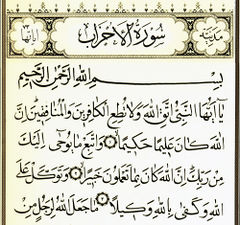 سورة الأحزاب
مدنية
بسم الله الرحمن الرحيم
يا أيها النبي اتق الله ولا تطع الكافرين والمنافقين إن
الله كان عليما حكيما واتبع ما يوحى إليك
من ربك إن الله كان بما تعملون خبيرا وتوكل على
الله وكفى بالله وكيلا ما جعل الله لرجل من